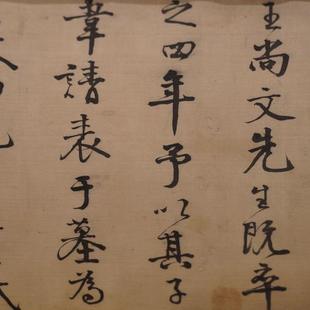 王尚文先生既卒
之四年予以其子
韋請表于墓為